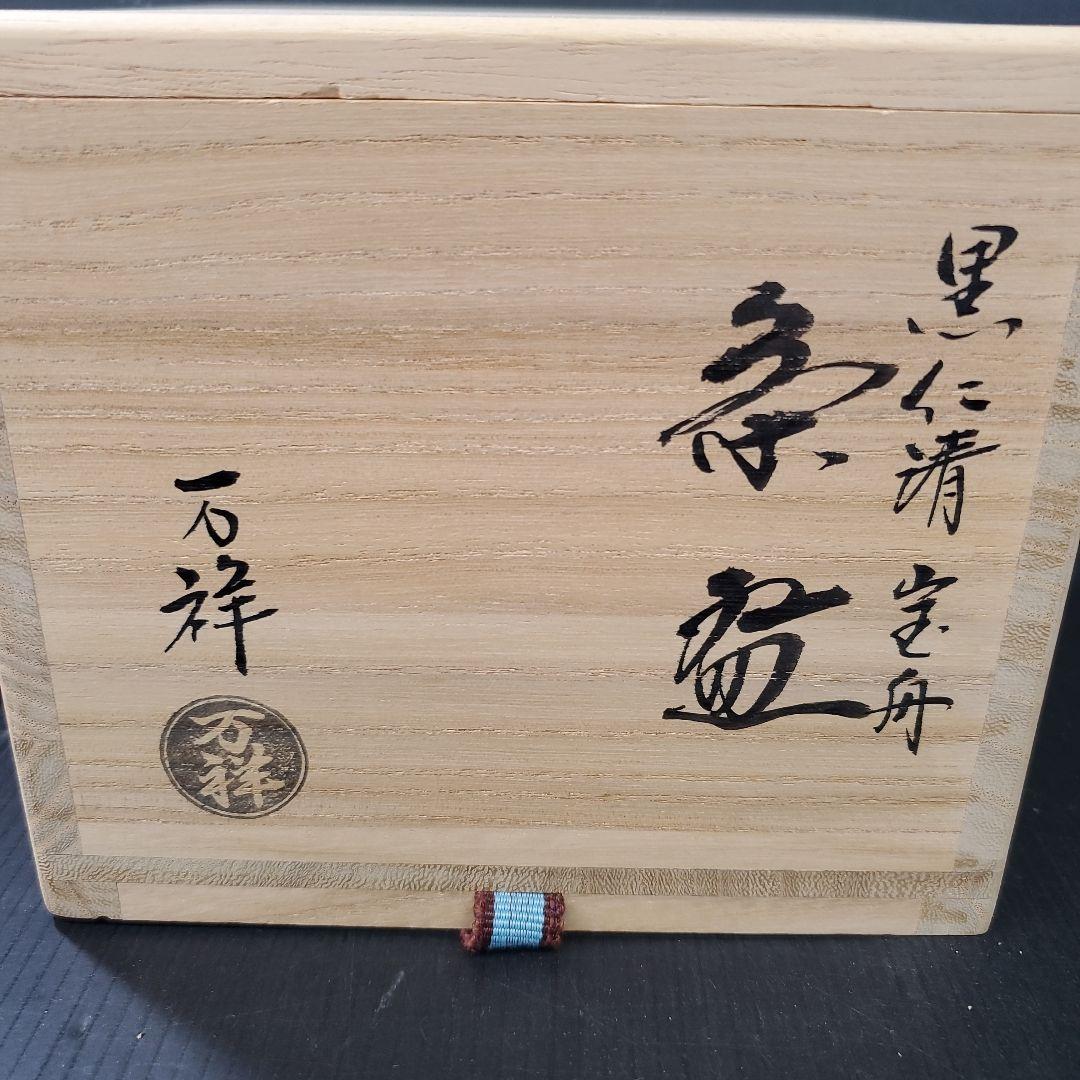 黒仁清 宝舟
茶盌
万祥
万祥